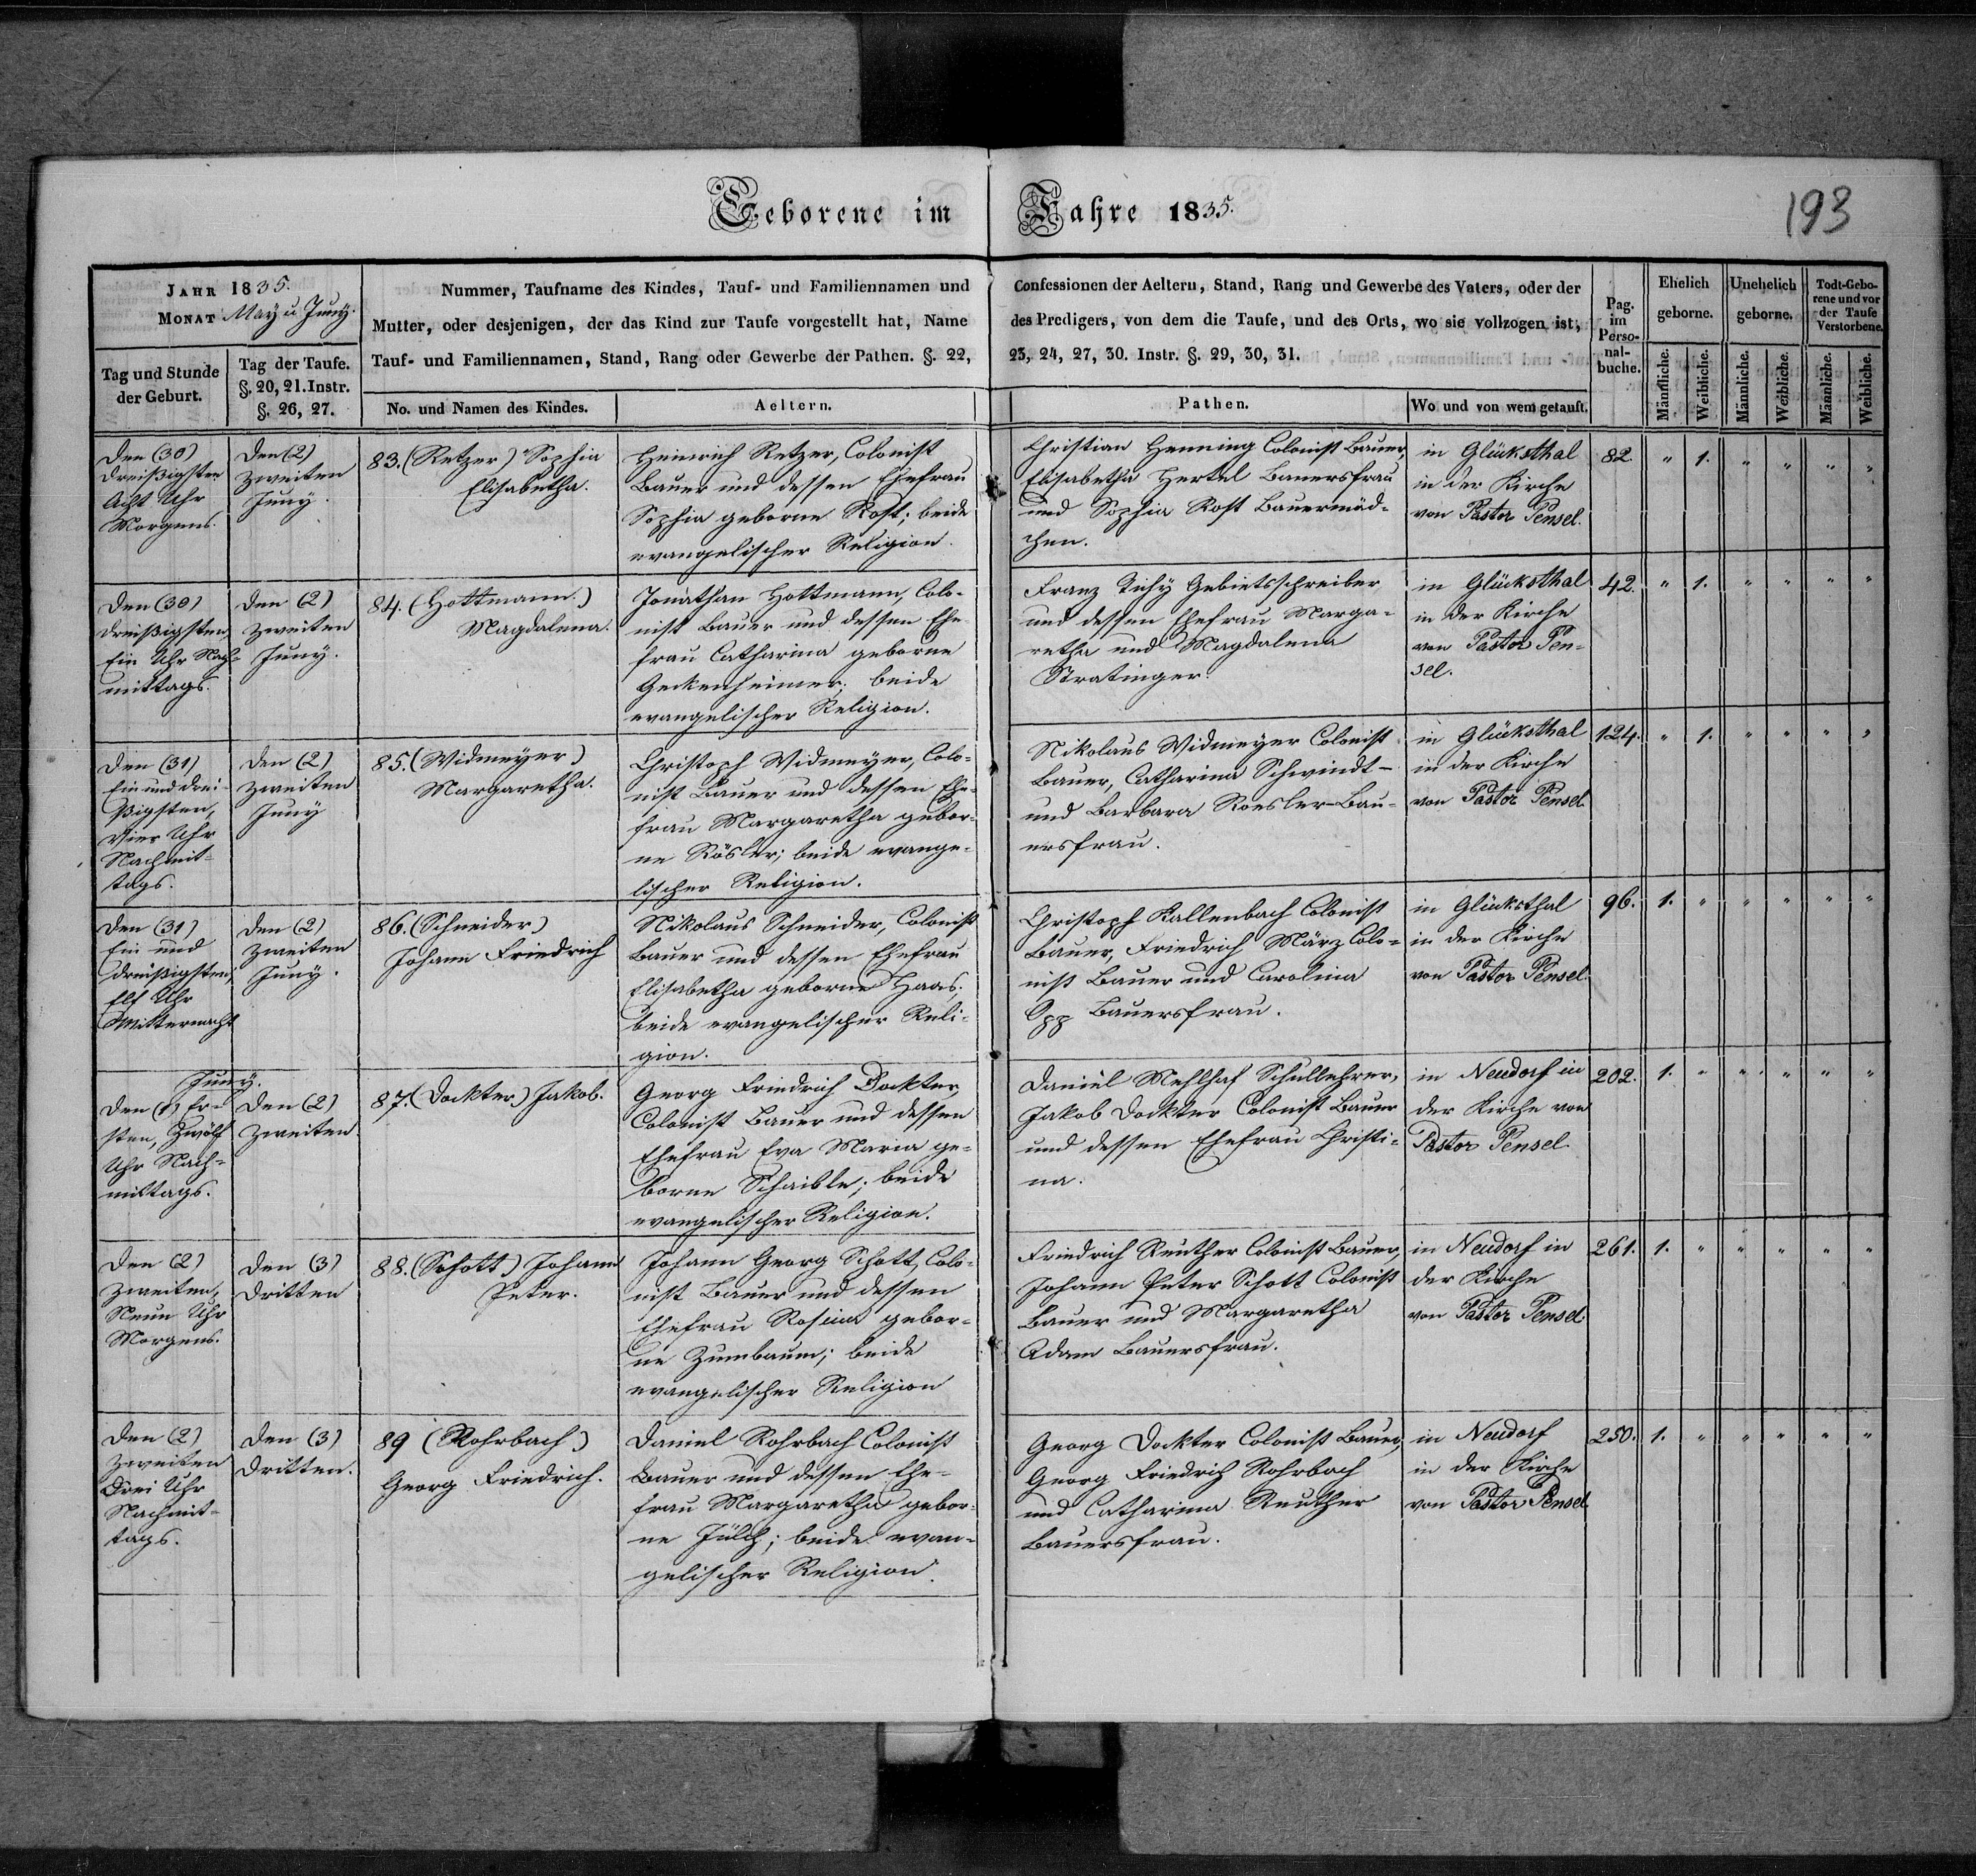 Geborene im Jahre 1835.
193
JAHR 1835.
MONAT May u Juny.
Nummer, Taufname des Kindes, Tauf- und Familiennamen und
Mutter, oder desjenigen, der das Kind zur Taufe vorgestellt hat, Name
Tauf- und Familiennamen, Stand, Rang oder Gewerbe der Pathen. §. 22,
Confessionen der Aeltern, Stand, Rang und Gewerbe des Vaters, oder der
des Predigers, von dem die Taufe, und des Orts, wo sie vollzogen ist,
23, 24, 27, 30. Instr. §. 29, 30, 31.
Pag.
im
Perso-
nal-
buche.
Ehelich
geborne.
Unehelich
geborne.
Todt-Gebo-
rene und vor
der Taufe
Verstorbene.
Tag und Stunde
der Geburt.
Tag der Taufe.
§. 20, 21. Instr.
§. 26, 27.
No. und Namen des Kindes.
Aeltern.
Pathen.
Wo und von wem getauft.
Männliche.
Weibliche.
Männliche.
Weibliche.
Männliche.
Weibliche.
Den (30)
dreißigsten
Acht Uhr
Morgens.
Den (2)
zweiten
Juny.
83. (Retzer) Sophia
Elisabetha.
Heinrich Retzer, Colonist
Bauer und dessen Ehefrau
Sophia geborne Rost; beide
evangelischer Religion.
Christian Henning Colonist Bauer,
Elisabetha Hertel Bauersfrau
und Sophia Rost Bauermäd-
chen.
in Glücksthal
in der Kirche
von Pastor Pensel.
82. " 1. " " " "
Den (30)
dreißigsten,
Ein Uhr Nach-
mittags.
Den (2)
zweiten
Juny.
84. (Hottmann.)
Magdalena.
Jonathan Hottmann, Colo-
nist Bauer und dessen Ehe-
frau Catharina geborne
Geckenheimer; beide
evangelischer Religion.
Franz Tichy Gebietsschreiber
und dessen Ehefrau Marga-
retha und Magdalena
Stratinger.
in Glücksthal
in der Kirche
von Pastor Pen-
sel.
42. " 1. " " " "
Den (31)
Ein und drei-
ßigsten,
Vier Uhr
Nachmit-
tags.
Den (2)
zweiten
Juny
85. (Widmeyer)
Margaretha.
Christoph Widmeyer, Colo-
nist Bauer und dessen Ehe-
frau Margaretha gebor-
ne Rösler; beide evange-
lischer Religion.
Nikolaus Widmeyer Colonist
Bauer, Catharina Schwindt-
und Barbara Roesler Bau-
ersfrau.
in Glücksthal
in der Kirche
von Pastor Pensel.
124. " 1. " " " "
Den (31)
Ein und
dreißigsten,
Elf Uhr
Mitternacht
Den (2)
zweiten
Juny.
86. (Schneider)
Johann Friedrich
Nikolaus Schneider, Colonist
Bauer und dessen Ehefrau
Elisabetha geborne Haas;
beide evangelischer Reli-
gion.
Christoph Kallenbach Colonist
Bauer, Friedrich März Colo-
nist Bauer und Carolina
Opp Bauersfrau.
in Glücksthal
in der Kirche
von Pastor Pensel.
96. 1. " " " " "
Juny.
Den (1) Er-
sten, Zwölf
Uhr Nach-
mittags.
Den (2)
zweiten.
87. (Dockter) Jakob.
Georg Friedrich Dockter,
Colonist Bauer und dessen
Ehefrau Eva Maria ge-
borne Schaible; beide
evangelischer Religion.
Daniel Mehlhaf Schullehrer,
Jakob Dockter Colonist Bauer
und dessen Ehefrau Christi-
na.
in Neudorf in
der Kirche von
Pastor Pensel.
202. 1. " " " " "
Den (2)
zweiten,
Neun Uhr
Morgens.
Den (3)
dritten
88. (Schott) Johann
Peter.
Johann Georg Schott, Colo-
nist Bauer und dessen
Ehefrau Rosina gebor-
ne Zumbaum; beide
evangelischer Religion
Friedrich Reuther Colonist Bauer,
Johann Peter Schott Colonist
Bauer und Margaretha
Adam Bauersfrau.
in Neudorf in
der Kirche
von Pastor Pensel.
261. 1. " " " " "
Den (2)
zweiten
Drei Uhr
Nachmit-
tags.
Den (3)
dritten.
89 (Rohrbach)
Georg Friedrich.
Daniel Rohrbach Colonist
Bauer und dessen Ehe-
frau Margaretha gebor-
ne Jülch; beide evan-
gelischer Religion.
Georg Dockter Colonist Bauer,
Georg Friedrich Rohrbach
und Catharina Reuther
Bauersfrau.
in Neudorf
in der Kirche
von Pastor Pensel
250. 1. " " " " "